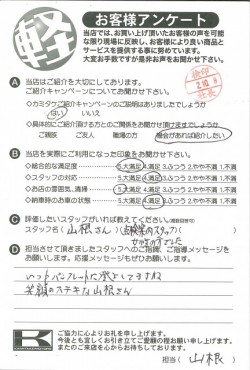 軽
お客様アンケート
当店では、お買い上げ頂いたお客様の声を可能
な限り現場に反映し、お客様により良い商品と
サービスを提供する事に努めています。
大変お手数ですが是非お声をお聞かせ下さい。
A 当店はご紹介を大切にしてあります。
ご紹介キャンペーンについてお聞かせ下さい。
◇カミタケご紹介キャンペーンのご説明はありましたでしょうか
はい いいえ
◇具体的にご紹介頂ける方とのご関係をお聞かせ頂けますでしょうか
ご親族 ご友人 職場の方 機会があれば紹介したい
B 当店を実際にご利用になった印象をお聞かせ下さい。
◇総合的な満足度 5.大満足 4.満足 3.ふつう 2.やや不満 1.不満
◇スタッフの対応 5.大満足 4.満足 3.ふつう 2.やや不満 1.不満
◇お店の雰囲気、清掃 5.大満足 4.満足 3.ふつう 2.やや不満 1.不満
◇納車時のお車の状態 5.大満足 4.満足 3.ふつう 2.やや不満 1.不満
C 評価したいスタッフがいれば教えてください。(複数回答可)
スタッフ名( 山根さん )( )
D 担当させて頂きましたスタッフへのご指摘、ご指導メッセージを
お願いします。応援メッセージもぜひお願いします。
笑顔のステキな山根さん
K
ご協力に心よりお礼を申し上げます。
今後とも宜しくお引き立てご愛顧の程お願い申し上げます。
またのご来店を心からお待ちしております。
担当( 山根 )